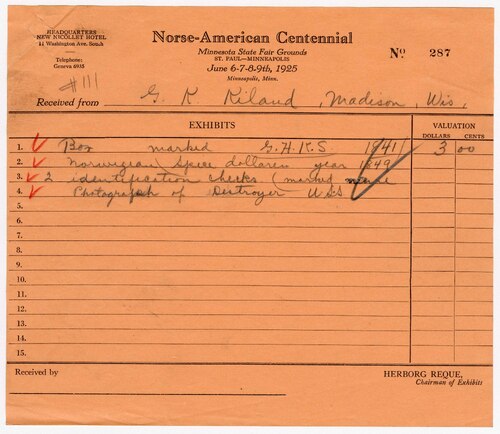 HEADQUARTERS
NEW NICOLLET HOTEL
11 Washington Ave. South
Telephone:
Geneva 6935
#111
Norse-American Centennial
Minnesota State Fair Grounds
ST. PAUL—MINNEAPOLIS
June 6-7-8-9th, 1925
Minneapolis, Minn.
No 287
Received from G. K. Kiland, Madison, Wis,
EXHIBITS
VALUATION
DOLLARS CENTS
1. Box marked G.H.K.S 1841 3 00
2. Norwegian Specie dollaren year 1849
3. 2 identification checks (marked
4. Photograph of Destroyer
5.
6.
7.
8.
9.
10.
11.
12.
13.
14.
15.
Received by
HERBORG REQUE,
Chairman of Exhibits